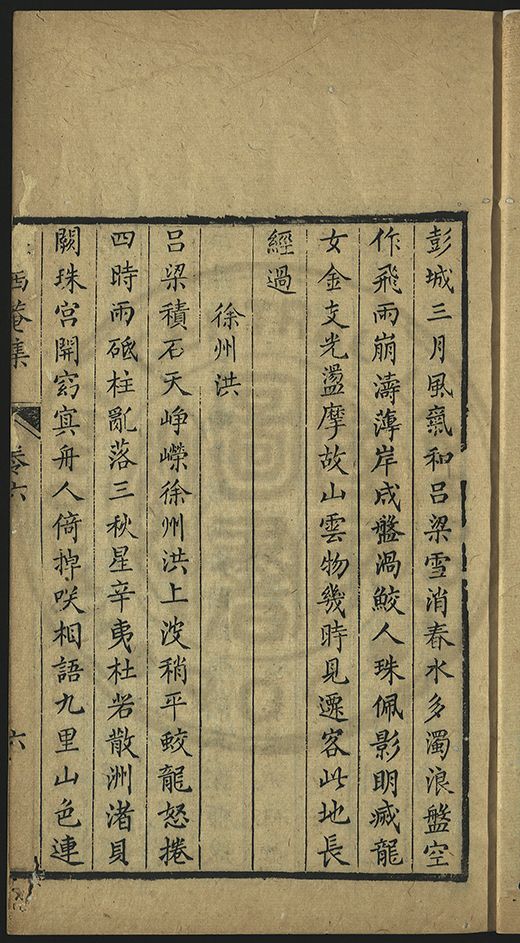 彭城三月風氣和吕梁雪消春水多濁浪盤空
作飛雨崩濤薄岸成盤渦鮫人珠佩影明滅龍
女金支光盪摩故山雲物幾時見遷客此地長
經過
徐州洪
吕梁積石天崢嶸徐州洪上波稍平蛟龍怒捲
四時雨砥柱亂落三秋星辛夷杜若散洲渚貝
闕珠宮開窈冥舟人倚掉咲相語九里山色連
西菴集 卷六 六